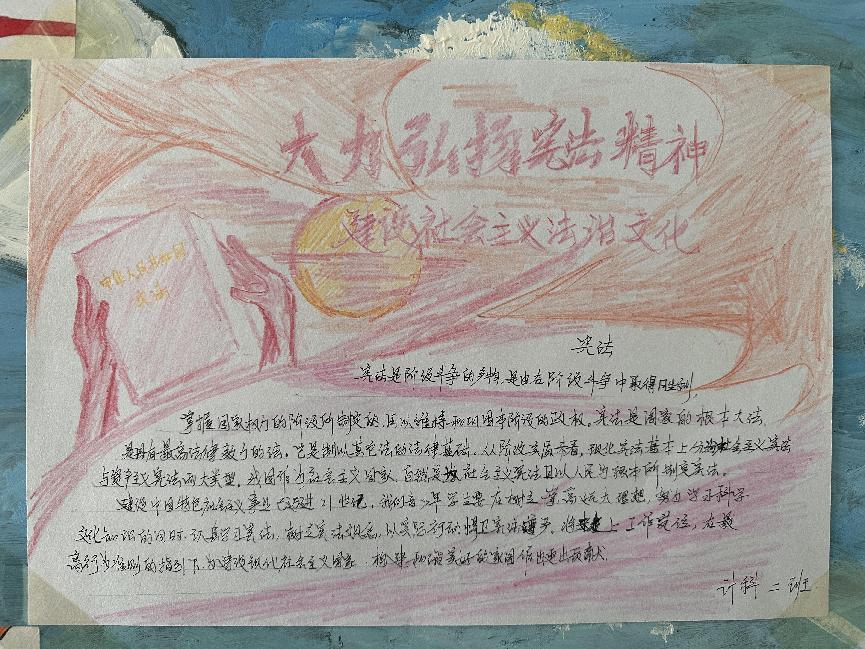 大力弘扬宪法精神
建设社会主义法治文化
中华人民共和国
宪法
宪法
宪法是阶级斗争的产物,是由在阶级斗争中取得胜利,
掌握国家权力的阶级所制定的,用以维持和巩固本阶级的政权。宪法是国家的根本大法,
是具有最高法律效力的法,它是制以其它法的法律基础。从阶级实质来看,现代宪法基本上分为社会主义宪法
与资本主义宪法两大类型。我国作为社会主义国家,自然是社会主义宪法且以人民为根本所制定宪法。
建设中国特色社会主义事业已迈进21世纪,我们青少年学生要在树立崇高远大理想,努力学习科学
文化知识的同时,认真学习宪法,树立宪法观念,以实际行动捍卫宪法,将上工作岗位,在最
高行为准则的指引下,为建设现代化社会主义国家,构建和谐美好的家园作出更出贡献
计科二班